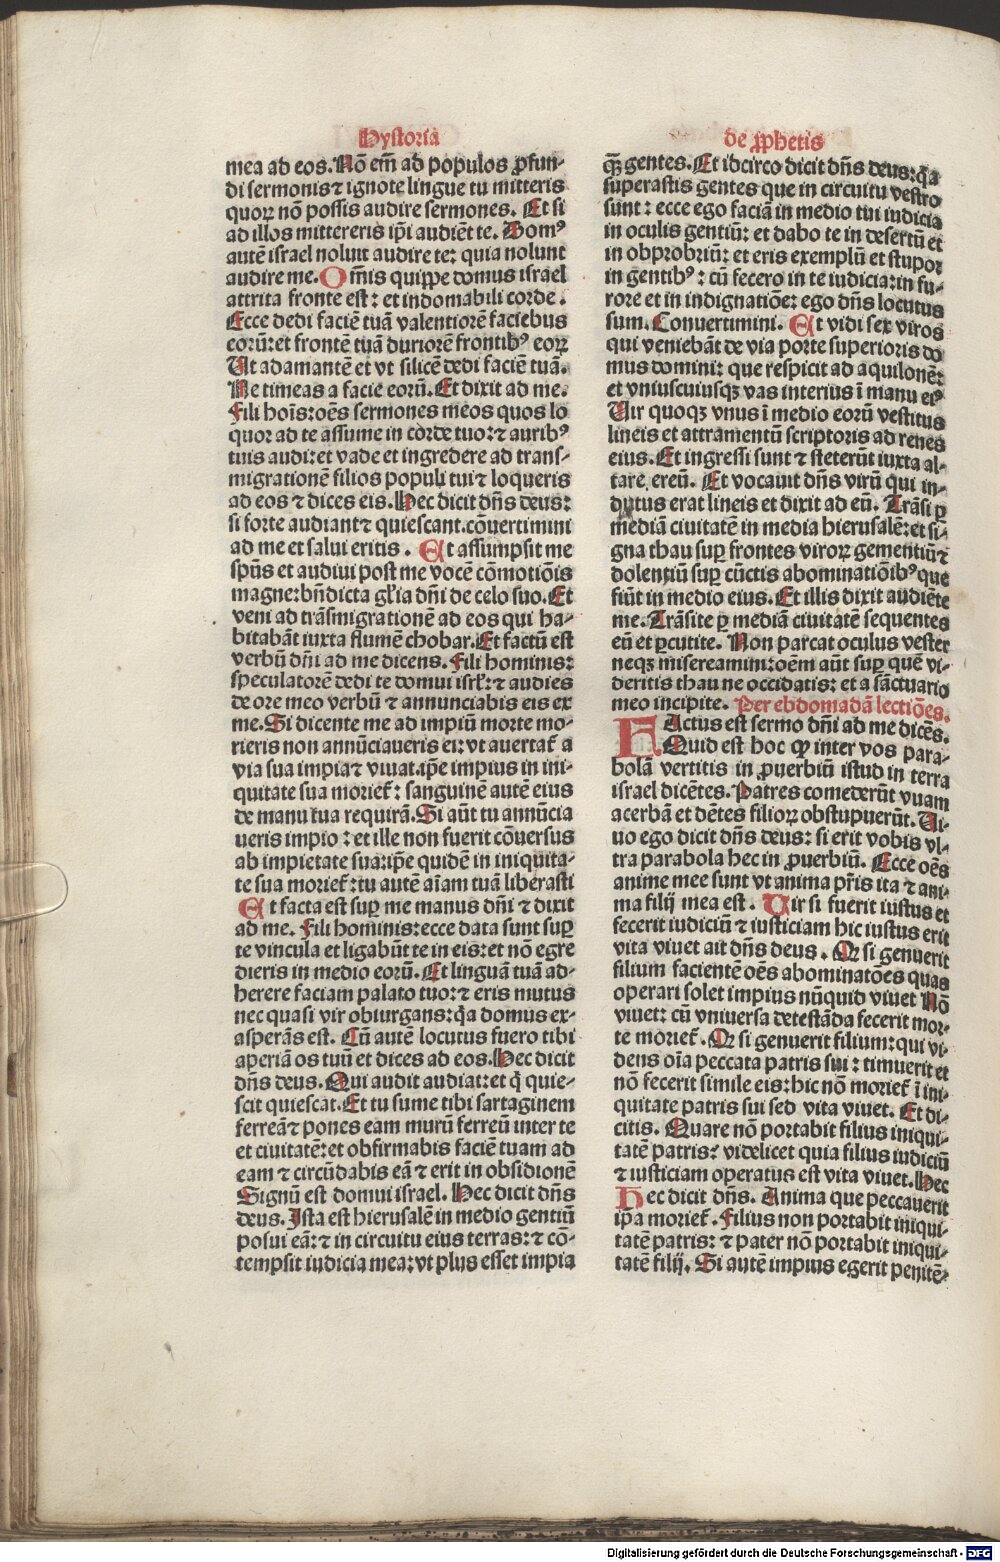 Hystoria
mea ad eos. Nō em̄ ad populos ꝓfun-
di sermonis ⁊ ignote lingue tu mitteris
quoꝝ nō possis audire sermones. Et si
ad illos mittereris ip̄i audiēt te. Domꝰ
autē israel noluit audire te: quia nolunt
audire me. Om̄is quippe domus israel
attrita fronte est: et indomabili corde.
Ecce dedi faciē tuā valentiorē faciebus
eorū: et frontē tuā duriorē frontibꝰ eoꝝ
Ut adamantē et vt silicē dedi faciē tuā.
Ne timeas a facie eorū. Et dixit ad me.
Fili hoīs: oēs sermones meos quos lo
quor ad te assume in corde tuo: ⁊ auribꝰ
tuis audi: et vade et ingredere ad trans-
migrationē filios populi tui ⁊ loqueris
ad eos ⁊ dices eis. Hec dicit dn̄s deus:
si forte audiant ⁊ quiescant. cōuertimini
ad me et salui eritis. Et assumpsit me
sp̄us et audiui post me vocē cōmotiōis
magne: bn̄dicta gl̄ia dn̄i de celo suo. Et
veni ad trāsmigrationē ad eos qui ha-
bitabāt iuxta flumē chobar. Et factū est
verbū dn̄i ad me dicens. Fili hominis:
speculatorē dedi te domui isrl̄: ⁊ audies
de ore meo verbū ⁊ annunciabis eis ex
me. Si dicente me ad impiū morte mo-
rieris non annūciaueris ei: vt auertat̄ a
via sua impia ⁊ viuat. ip̄e impius in ini-
quitate sua moriet̄: sanguinē autē eius
de manu tua requirā. Si aūt tu annūcia
ueris impio: et ille non fuerit cōuersus
ab impietate sua: ip̄e quidē in iniquita-
te sua moriet̄: tu autē aīam tuā liberasti
Et facta est suꝑ me manus dn̄i ⁊ dixit
ad me. Fili hominis: ecce data sunt suꝑ
te vincula et ligabūt te in eis: et nō egre
dieris in medio eorū. Et linguā tuā ad-
herere faciam palato tuo: ⁊ eris mutus
nec quasi vir obiurgans: q̄a domus ex-
asperās est. Cū autē locutus fuero tibi
aperiā os tuū et dices ad eos. Hec dicit
dn̄s deus. Qui audit audiat: et q̄ quie-
scit quiescat. Et tu sume tibi sartaginem
ferreā ⁊ pones eam murū ferreū inter te
et ciuitatē: et obfirmabis faciē tuam ad
eam ⁊ circūdabis eā ⁊ erit in obsidionē
Signū est domui israel. Hec dicit dn̄s
deus. Ista est hierusalē in medio gentiū
posui eā: ⁊ in circuitu eius terras: ⁊ cō-
tempsit iudicia mea: vt plus esset impia
de ꝓphetis
qꝫ̄ gentes. Et idcirco dicit dn̄s deus: q̄a
superastis gentes que in circuitu vestro
sunt: ecce ego faciā in medio tui iudicia
in oculis gentiū: et dabo te in desertū et
in obprobriū: et eris exemplū et stupor
in gentibꝰ: cū fecero in te iudicia: in fu-
rore et in indignatiōe: ego dn̄s locutus
sum. Conuertimini. Et vidi sex viros
qui veniebāt de via porte superioris do
mus domini: que respicit ad aquilonē:
et vniuscuiusqꝫ vas interius ī manu eiꝰ
Uir quoqꝫ vnus ī medio eorū vestitus
lineis et attramentū scriptoris ad renes
eius. Et ingressi sunt ⁊ steterūt iuxta al-
tare ereū. Et vocauit dn̄s virū qui in-
dutus erat lineis et dixit ad eū. Trāsi ꝑ
mediā ciuitatē in media hierusalē: et si-
gna thau suꝑ frontes viroꝝ gementiū ⁊
dolentiū suꝑ cūctis abominatiōibꝰ que
fiūt in medio eius. Et illis dixit audiēte
me. Trāsite ꝑ mediā ciuitatē sequentes
eū et ꝑcutite. Non parcat oculus vester
neqꝫ misereamini: oēm aūt suꝑ quē vi-
deritis thau ne occidatis: et a sāctuario
meo incipite. Per ebdomadā lectiōes.
FActus est sermo dn̄i ad me dicēs.
Quid est hoc ꝙ inter vos para-
bolā vertitis in ꝓuerbiū istud in terra
israel dicētes. Patres comederūt vuam
acerbā et dētes filioꝝ obstupuerūt. Ui-
uo ego dicit dn̄s deus: si erit vobis vl-
tra parabola hec in ꝓuerbiū. Ecce oēs
anime mee sunt vt anima pr̄is ita ⁊ ani-
ma filij mea est. Uir si fuerit iustus et
fecerit iudiciū ⁊ iusticiam hic iustus erit
vita viuet ait dn̄s deus. Qꝫ si genuerit
filium facientē oēs abominatōes quas
operari solet impius nūquid viuet Nō
viuet: cū vniuersa detestāda fecerit mor-
te moriet̄. Qꝫ si genuerit filium: qui vi-
dens oīa peccata patris sui: timuerit et
nō fecerit simile eis: hic nō moriet̄ ī ini-
quitate patris sui sed vita viuet. Et di-
citis. Quare nō portabit filius iniqui-
tatē patris? videlicet quia filius iudiciū
⁊ iusticiam operatus est vita viuet. Hec
Hec dicit dn̄s. Anima que peccauerit
ip̄a moriet̄. Filius non portabit iniqui-
tatē patris: ⁊ pater nō portabit iniqui-
tatē filij. Si autē impius egerit penitē-
Digitalisierung gefördert durch die Deutsche Forschungsgemeinschaft - DFG